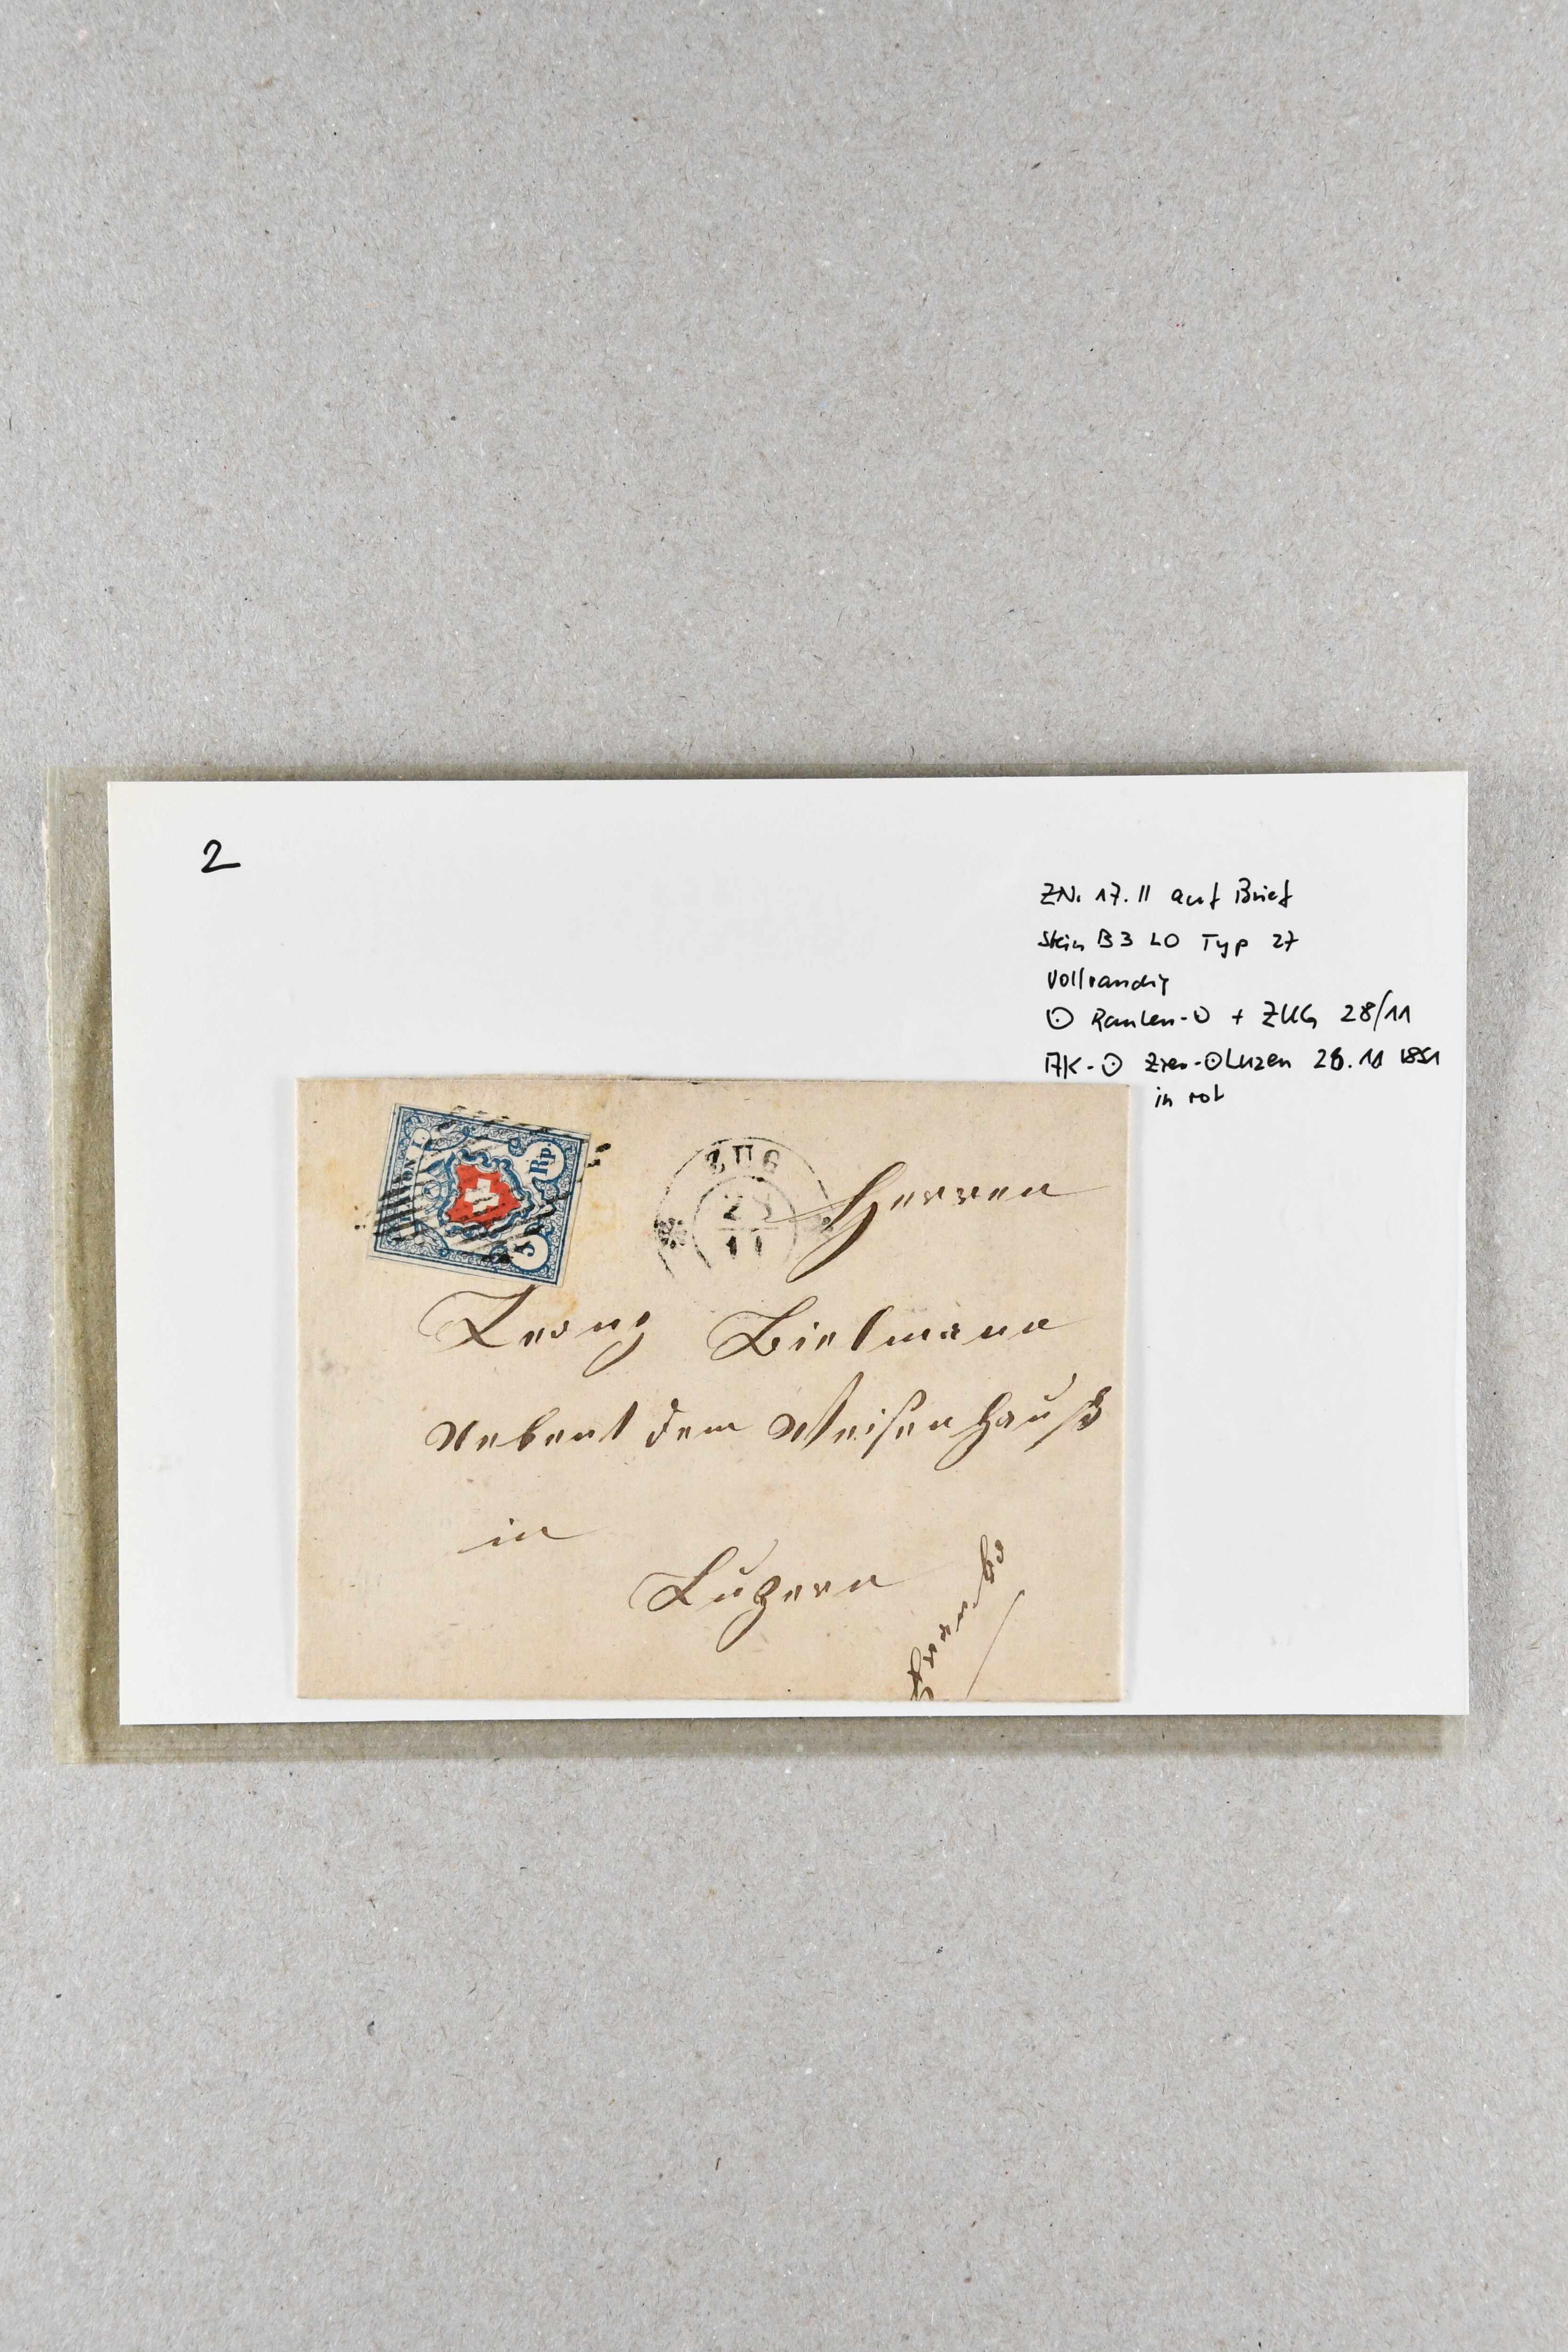 2
ZN. 17.II auf Brief
Stein B3 LO Typ 27
vollrandig
⊙ Rauten-O + ZUG 28/11
AK-⊙ Zier-⊙ Luzern 28.11 1851
in rot
Rp.
5
ZUG
28
11
Herren
Bielmann
Nebent dem Weisenhauß
in
Luzern
Franko